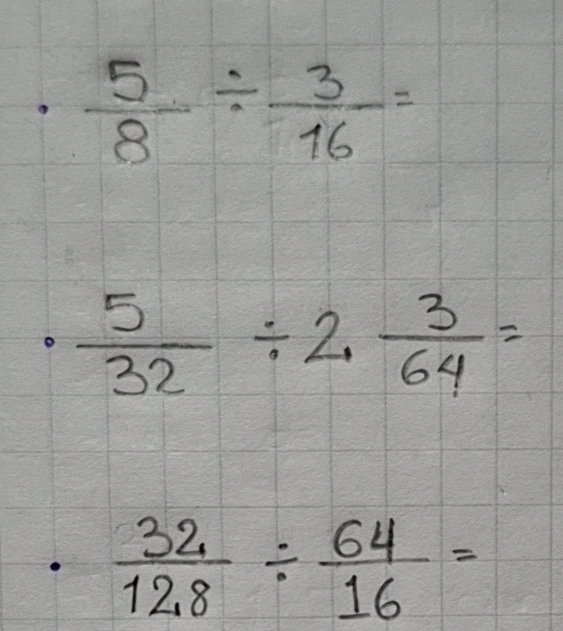 5/8 ÷ 3/16 =
5/32 ÷ 2 3/64 =
32/128 ÷ 64/16 =